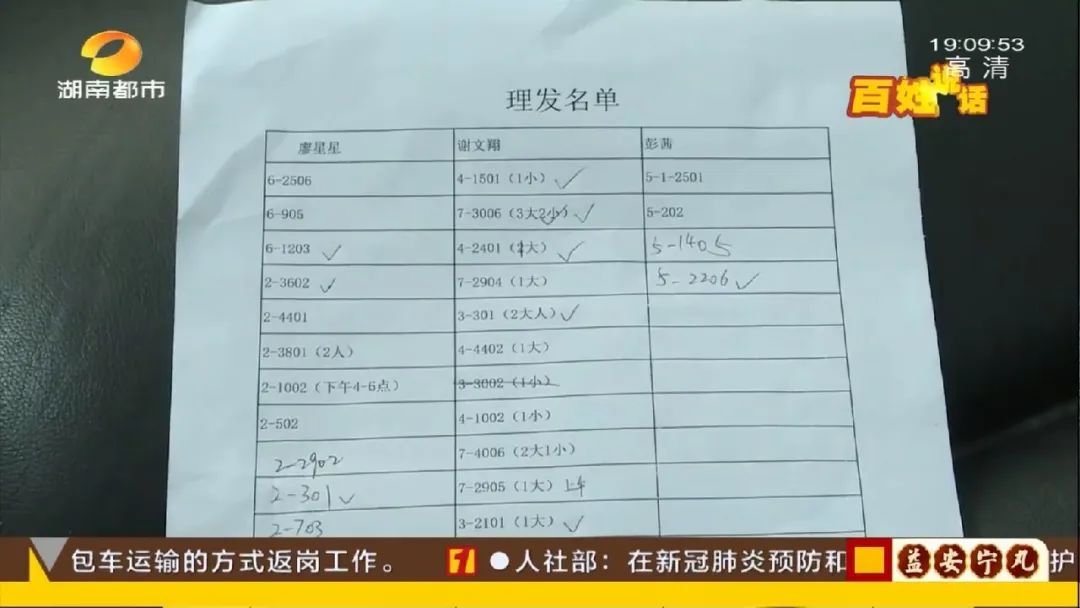 湖南都市
19:09:53
高清
百姓说话
理发名单
廖星星 谢文翔 彭茜
6-2506 4-1501（1小）✓ 5-1-2501
6-905 7-3006（3大2小）✓ 5-202
6-1203 ✓ 4-2401（大）✓ 5-1405
2-3602 ✓ 7-2904（1大） 5-2206 ✓
2-4401 3-301（2大人）✓
2-3801（2人） 4-4402（1大）
2-1002（下午4-6点） 3-3002（1小）
2-502 4-1002（1小）
2-2902 7-4006（2大1小）
2-301 ✓ 7-2905（1大）上午
2-703 3-2101（1大）✓
包车运输的方式返岗工作。 ●人社部：在新冠肺炎预防和 益安宁丸 护